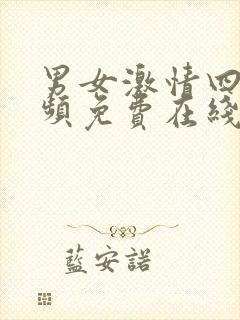 男女激情四
頻免費在綫
藍安諾